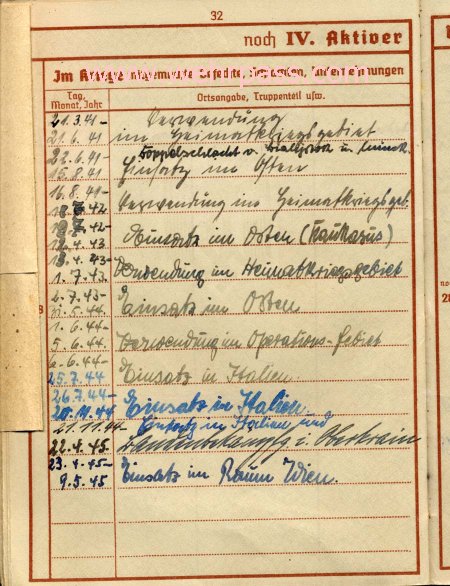 32
noch IV. Aktiver
Im Kriege mitgemachte Gefechte, Schlachten, Unternehmungen
Tag, Monat, Jahr
Ortsangabe, Truppenteil usw.
21.3.41 – Verwendung
21.6.41 im Heimatkriegsgebiet
22.6.41 – Doppelschlacht v. Bialystok u. Minsk.
15.8.41 Einsatz im Osten
16.8.41 – Verwendung im Heimatkriegsgeb.
42
42 – Einsatz im Osten (Kaukasus)
12.4.43
13.4.43 – Verwendung im Heimatkriegsgebiet
1.7.43
2.7.43 – Einsatz im Osten
5.44
1.6.44 – Verwendung im Operations-Gebiet
5.6.44
6.6.44 – Einsatz in Italien
25.7.44
26.7.44 – Einsatz in Italien
20.11.44
21.11.44 – Einsatz in Italien und
22.4.45 i. Oberkrain
23.4.45 – Einsatz im Raum Wien.
9.5.45